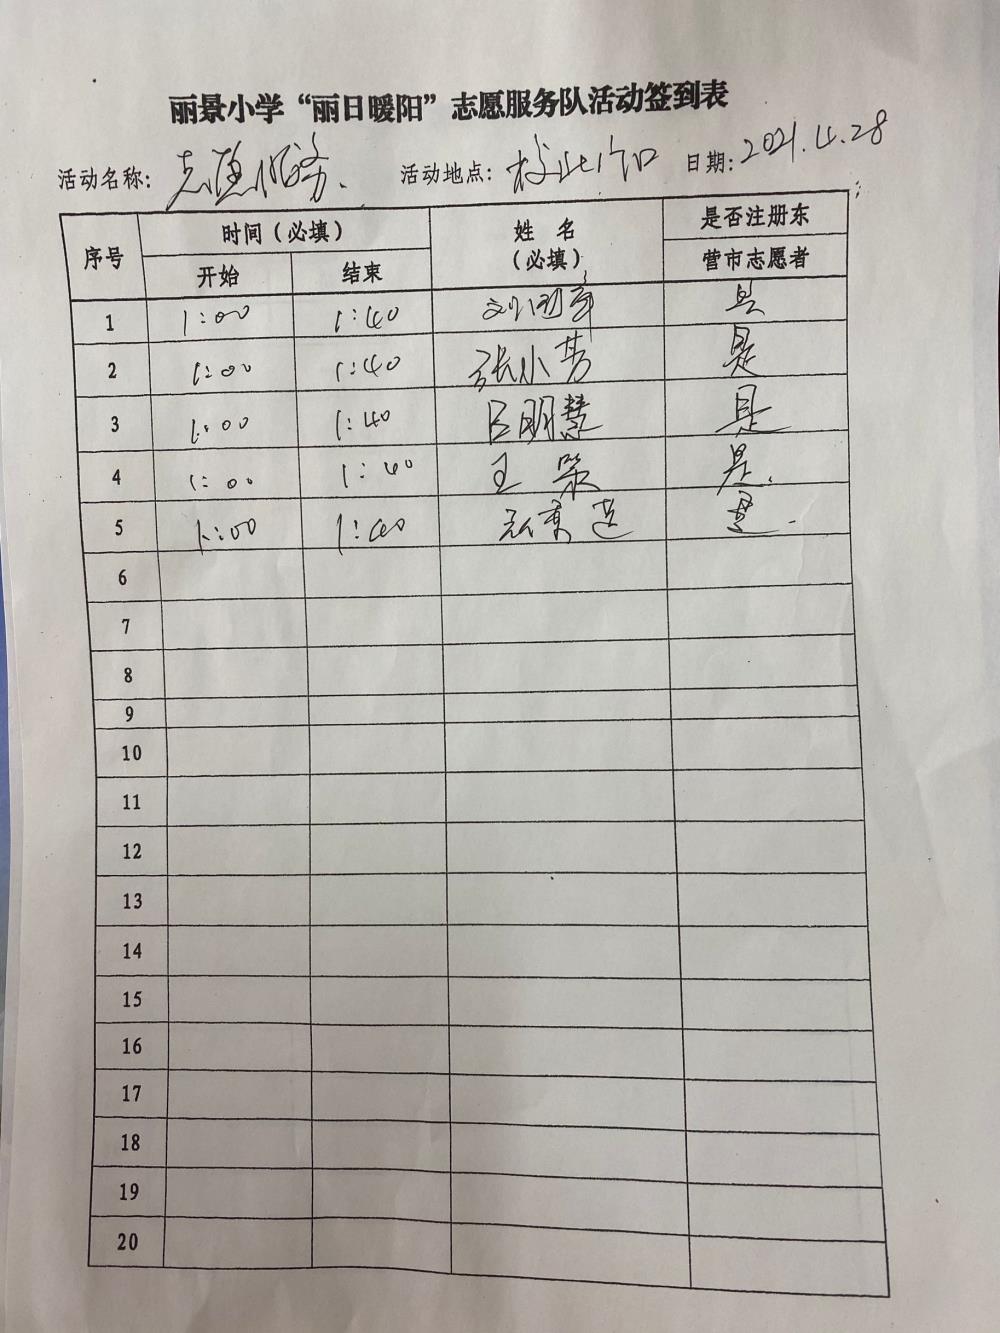 丽景小学“丽日暖阳”志愿服务队活动签到表
活动名称：志愿服务. 活动地点：校 门口 日期：2021.4.28
序号 时间（必填） 姓 名（必填） 是否注册东营市志愿者
开始 结束
1 1:00 1:40 是
2 1:00 1:40 张小芳 是
3 1:00 1:40 吕明慧 是
4 1:00 1:40 王 是.
5 1:00 1:40 是.
6
7
8
9
10
11
12
13
14
15
16
17
18
19
20